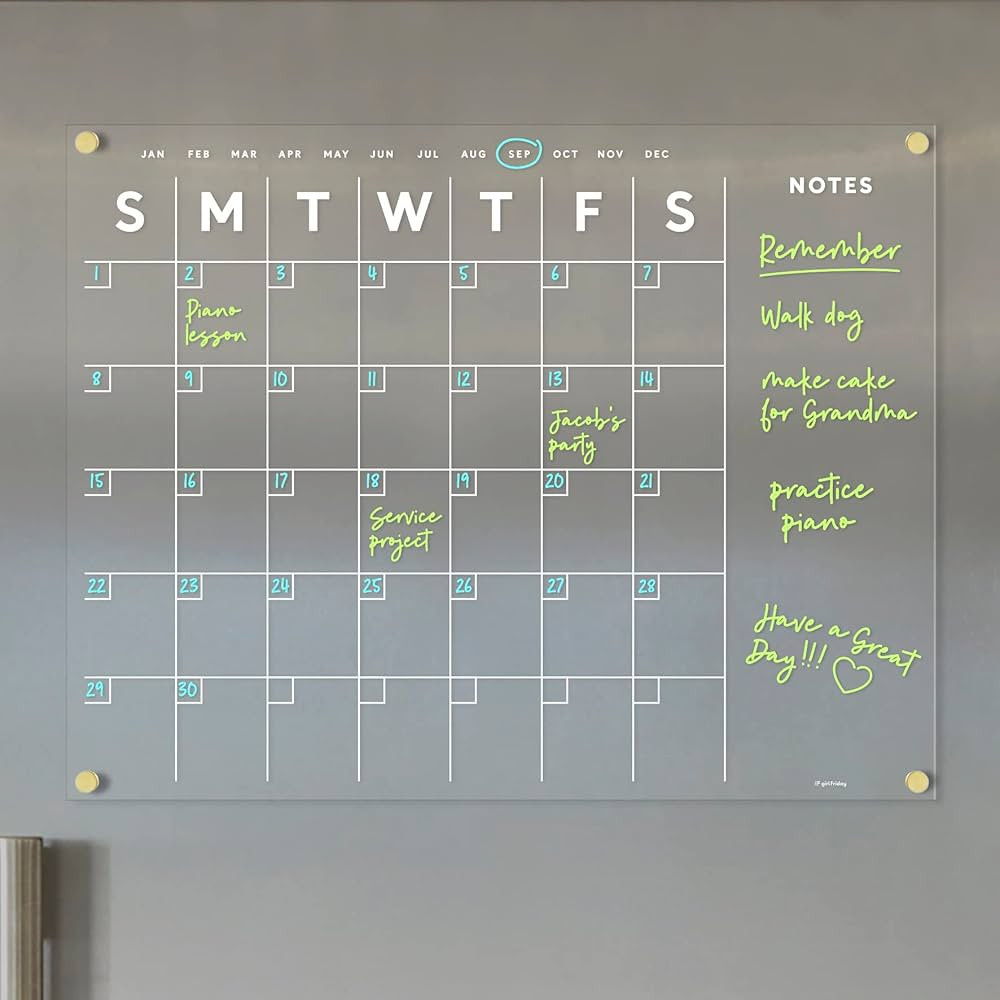 JAN FEB MAR APR MAY JUN JUL AUG SEP OCT NOV DEC
S M T W T F S
1 2 3 4 5 6 7
Piano
lesson
8 9 10 11 12 13 14
Jacob's
party
15 16 17 18 19 20 21
Service
project
22 23 24 25 26 27 28
29 30
NOTES
Remember
Walk dog
make cake
for Grandma
practice
piano
Have a Great
Day!!!
girlfriday